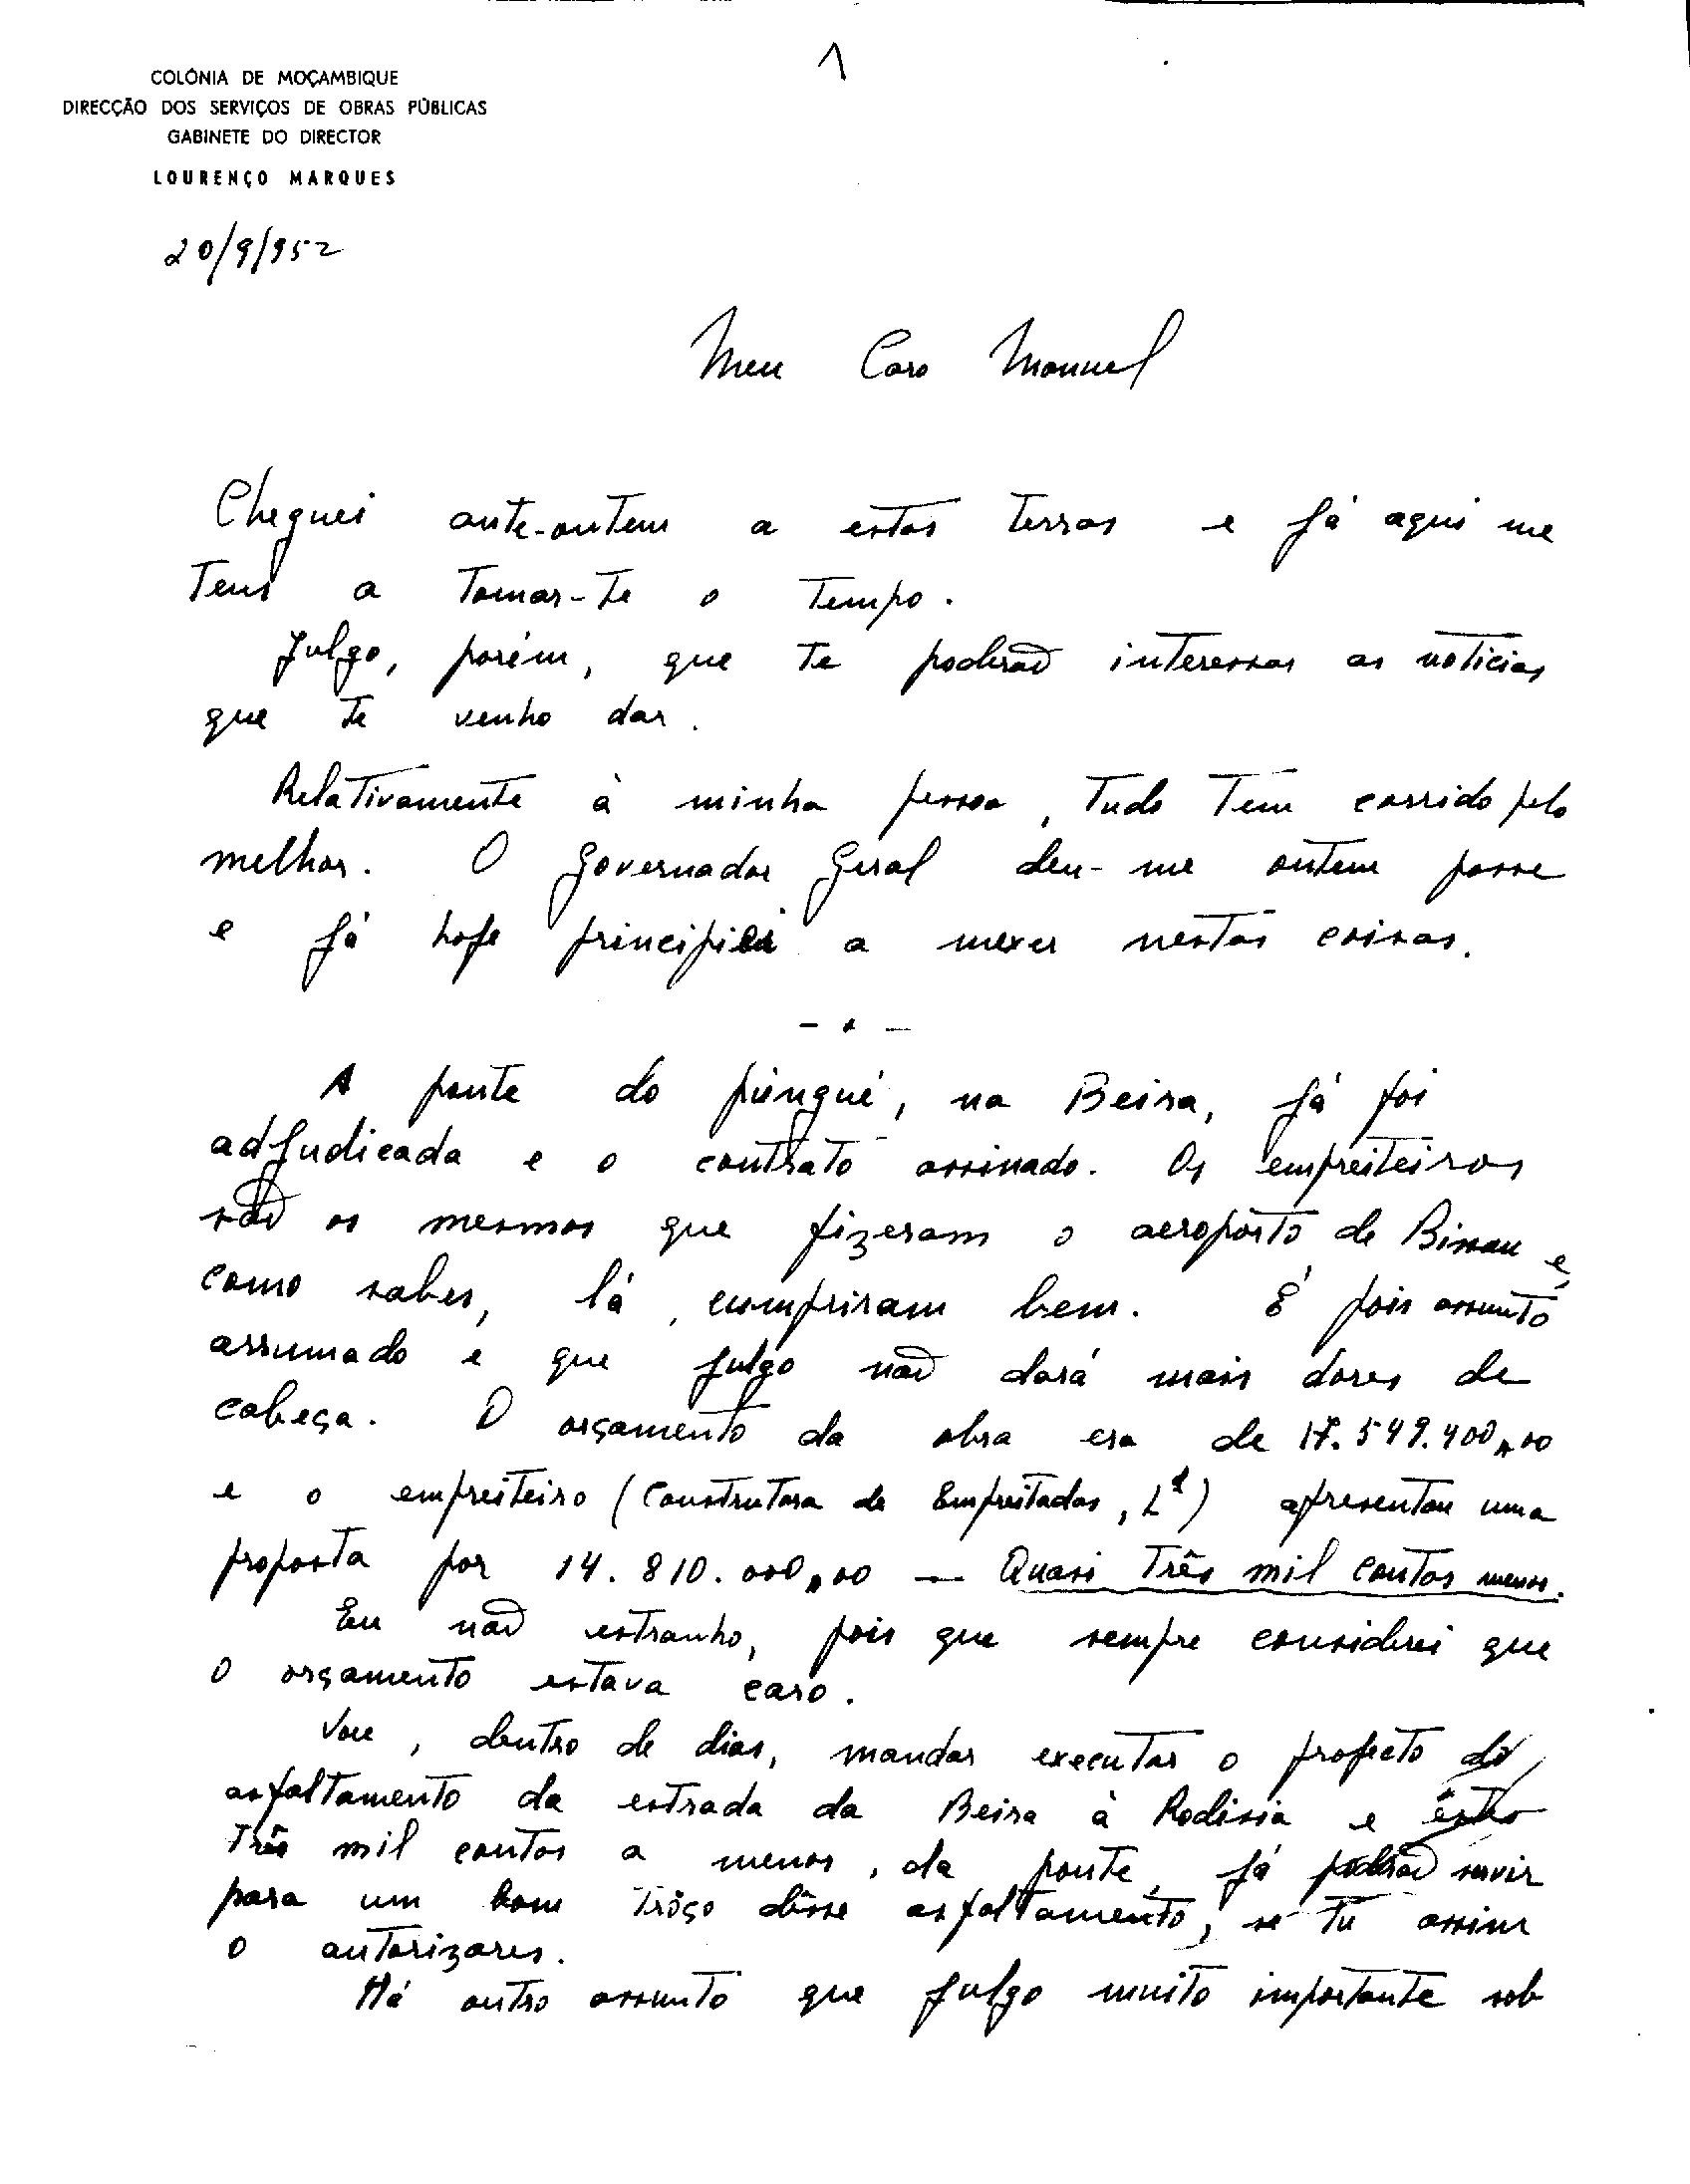 1
COLÓNIA DE MOÇAMBIQUE
DIRECÇÃO DOS SERVIÇOS DE OBRAS PÚBLICAS
GABINETE DO DIRECTOR
LOURENÇO MARQUES
20/9/952
Meu Caro Manuel
Cheguei ante-ontem a estas terras e já aqui me
tens a tomar-te o tempo.
Julgo, porém, que te poderão interessar as noticias
que te venho dar.
Relativamente à minha pessoa, tudo tem corrido pelo
melhor. O Governador Geral deu-me ontem posse
e já hoje principiei a mexer nestas coisas.
- * -
A ponte do púnguè, na Beira, já foi
adjudicada e o contrato assinado. Os empreiteiros
são os mesmos que fizeram o aeropôrto de Bissau e,
como sabes, lá, cumpriram bem. É pois assunto
arrumado e que julgo não dará mais dores de
cabeça. O orçamento da obra era de 17.549.400,00
e o empreiteiro (Construtora de Empreitadas, Lª) apresentou uma
proposta por 14.810.000,00 — Quasi três mil contos menos.
Eu não estranho, pois que sempre considerei que
o orçamento estava caro.
Vou, dentro de dias, mandar executar o projecto do
asfaltamento da estrada da Beira à Rodésia e êstes
três mil contos a menos, da ponte, já poderão servir
para um bom trôço dêsse asfaltamento, se tu assim
o autorizares.
Há outro assunto que julgo muito importante sob